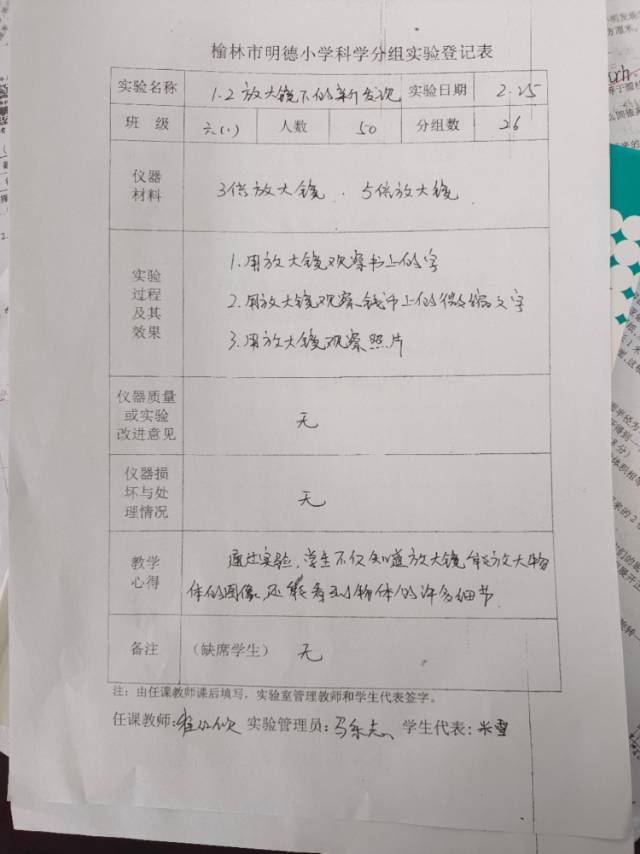 榆林市明德小学科学分组实验登记表
实验名称 1.2 放大镜下的新发现 实验日期 2.25
班 级 六(1) 人数 50 分组数 26
仪器 材料 3倍放大镜 、5倍放大镜
实验 过程 及其 效果
1.用放大镜观察书上的字
2.用放大镜观察钱币上的微缩文字
3.用放大镜观察照片
仪器质量 或实验 改进意见 无
仪器损 坏与处 理情况 无
教学 心得
通过实验,学生不仅知道放大镜能放大物
体的图像,还能看到物体的许多细节.
备注 (缺席学生) 无
注:由任课教师课后填写,实验室管理教师和学生代表签字。
任课教师: 实验管理员: 学生代表:米雪